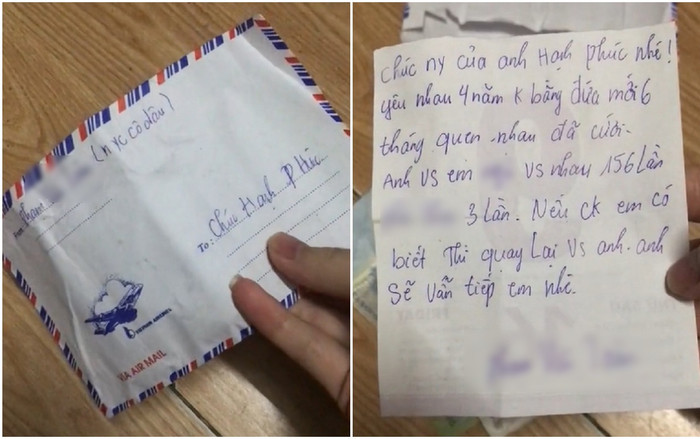 (NYC cô dâu)
From:
To: Chúc Hạnh Phúc
VIA AIR MAIL
Chúc ny của anh Hạnh phúc nhé!
yêu nhau 4 năm k bằng đứa mới 6
tháng quen nhau đã cưới.
Anh vs em vs nhau 156 lần
3 lần. Nếu ck em có
biết Thì quay lại vs anh. anh
sẽ vẫn tiếp em nhé.